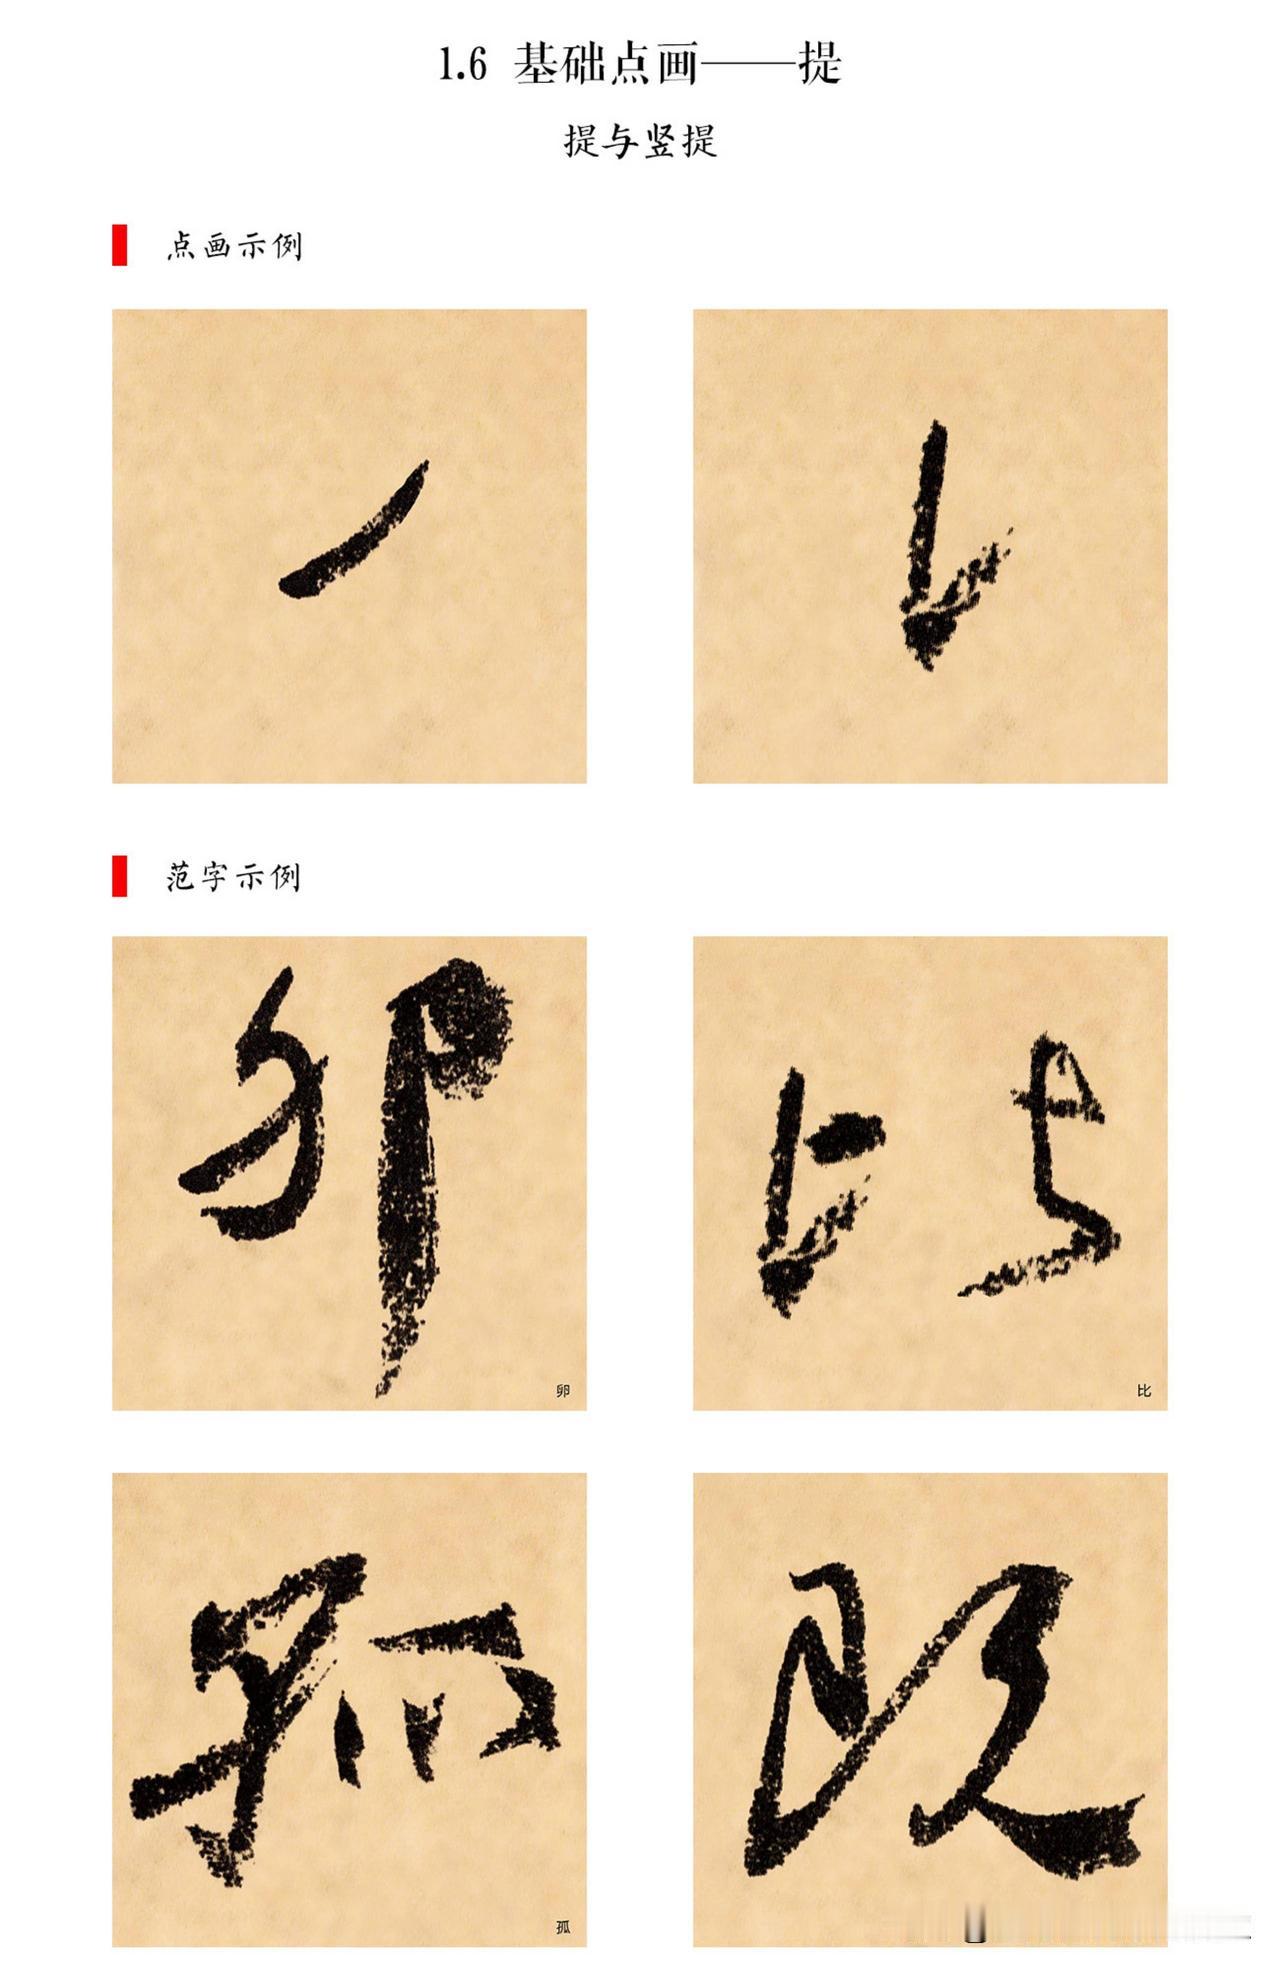 1.6 基础点画——提
提与竖提
点画示例
范字示例
卵
比
卵
比
孤
既
孤